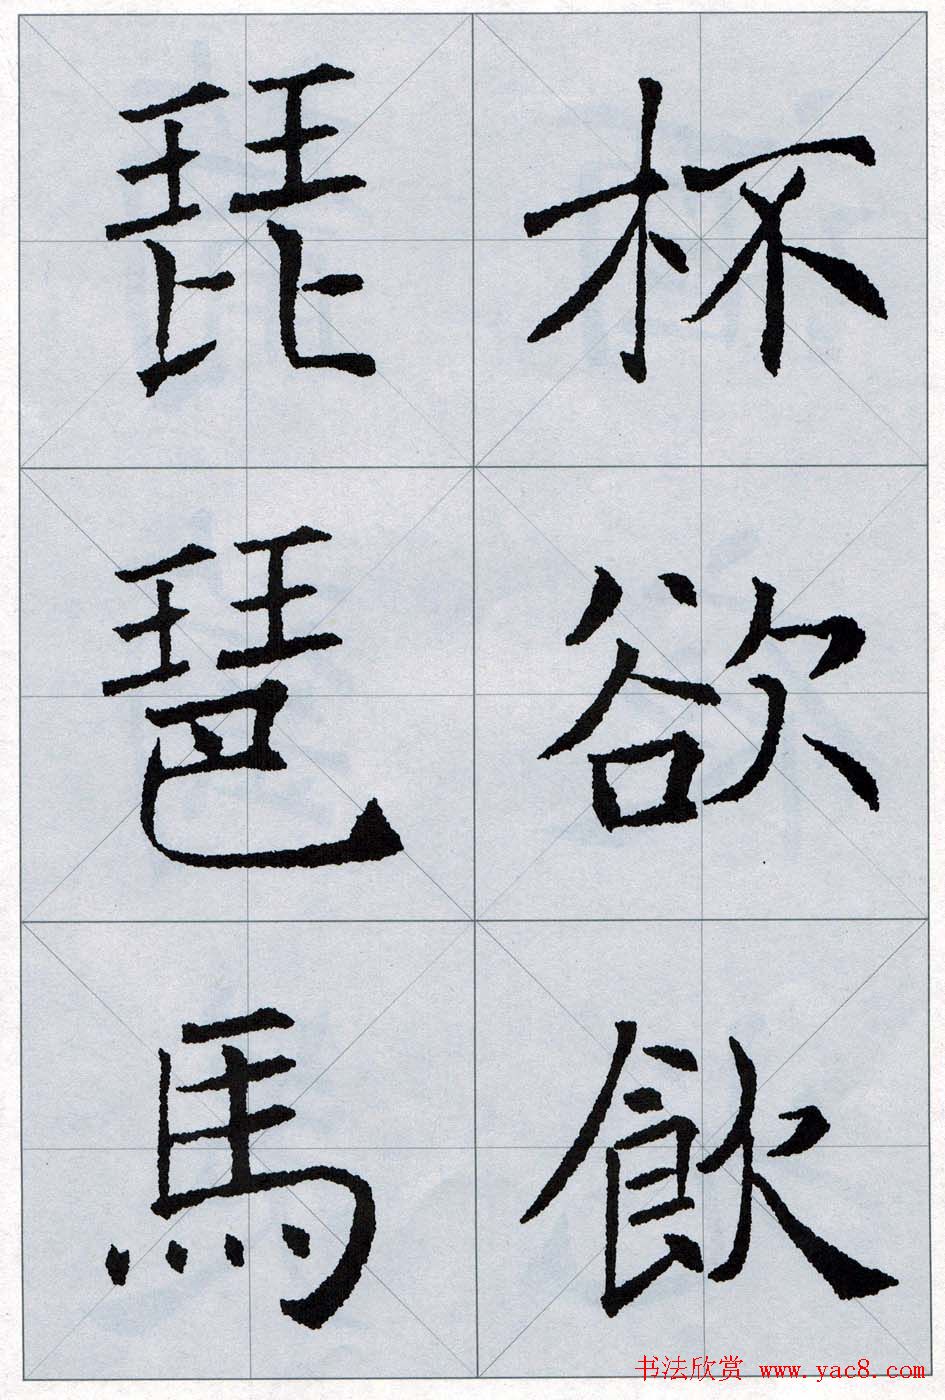 杯欲飲
琵琶馬
书法欣赏 www.yac8.com